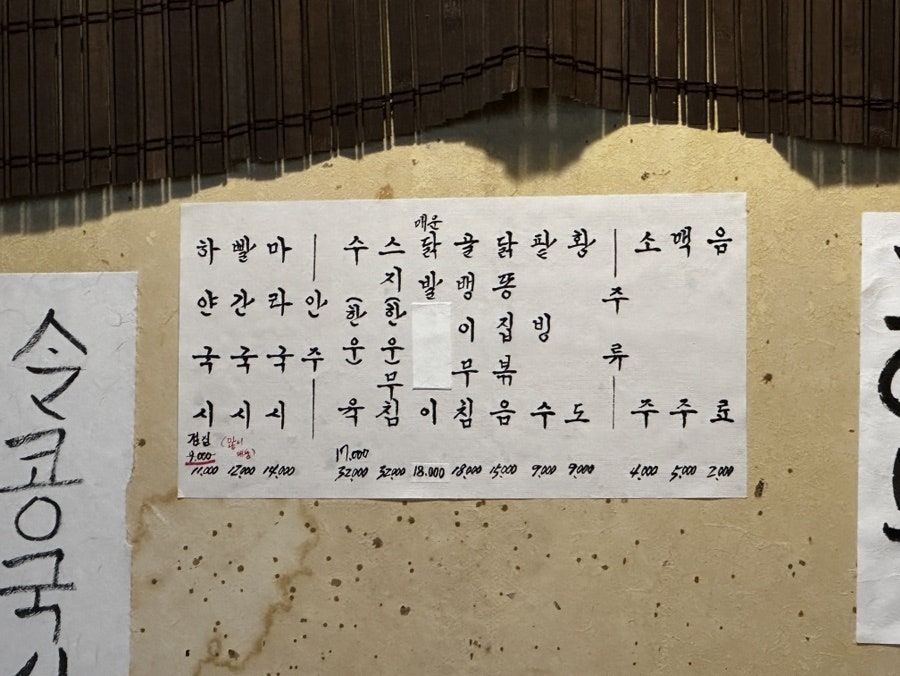 손콩국
하얀국시
점심
9,000
11,000
빨간국시
(많이
매움)
12,000
마라국시
14,000
안주
수(한우)육
17,000
32,000
스지(한우)무침
32,000
매운
닭발 이
18,000
골뱅이무침
18,000
닭똥집볶음
15,000
팥빙수
9,000
황도
9,000
주류
소주
4,000
맥주
5,000
음료
2,000